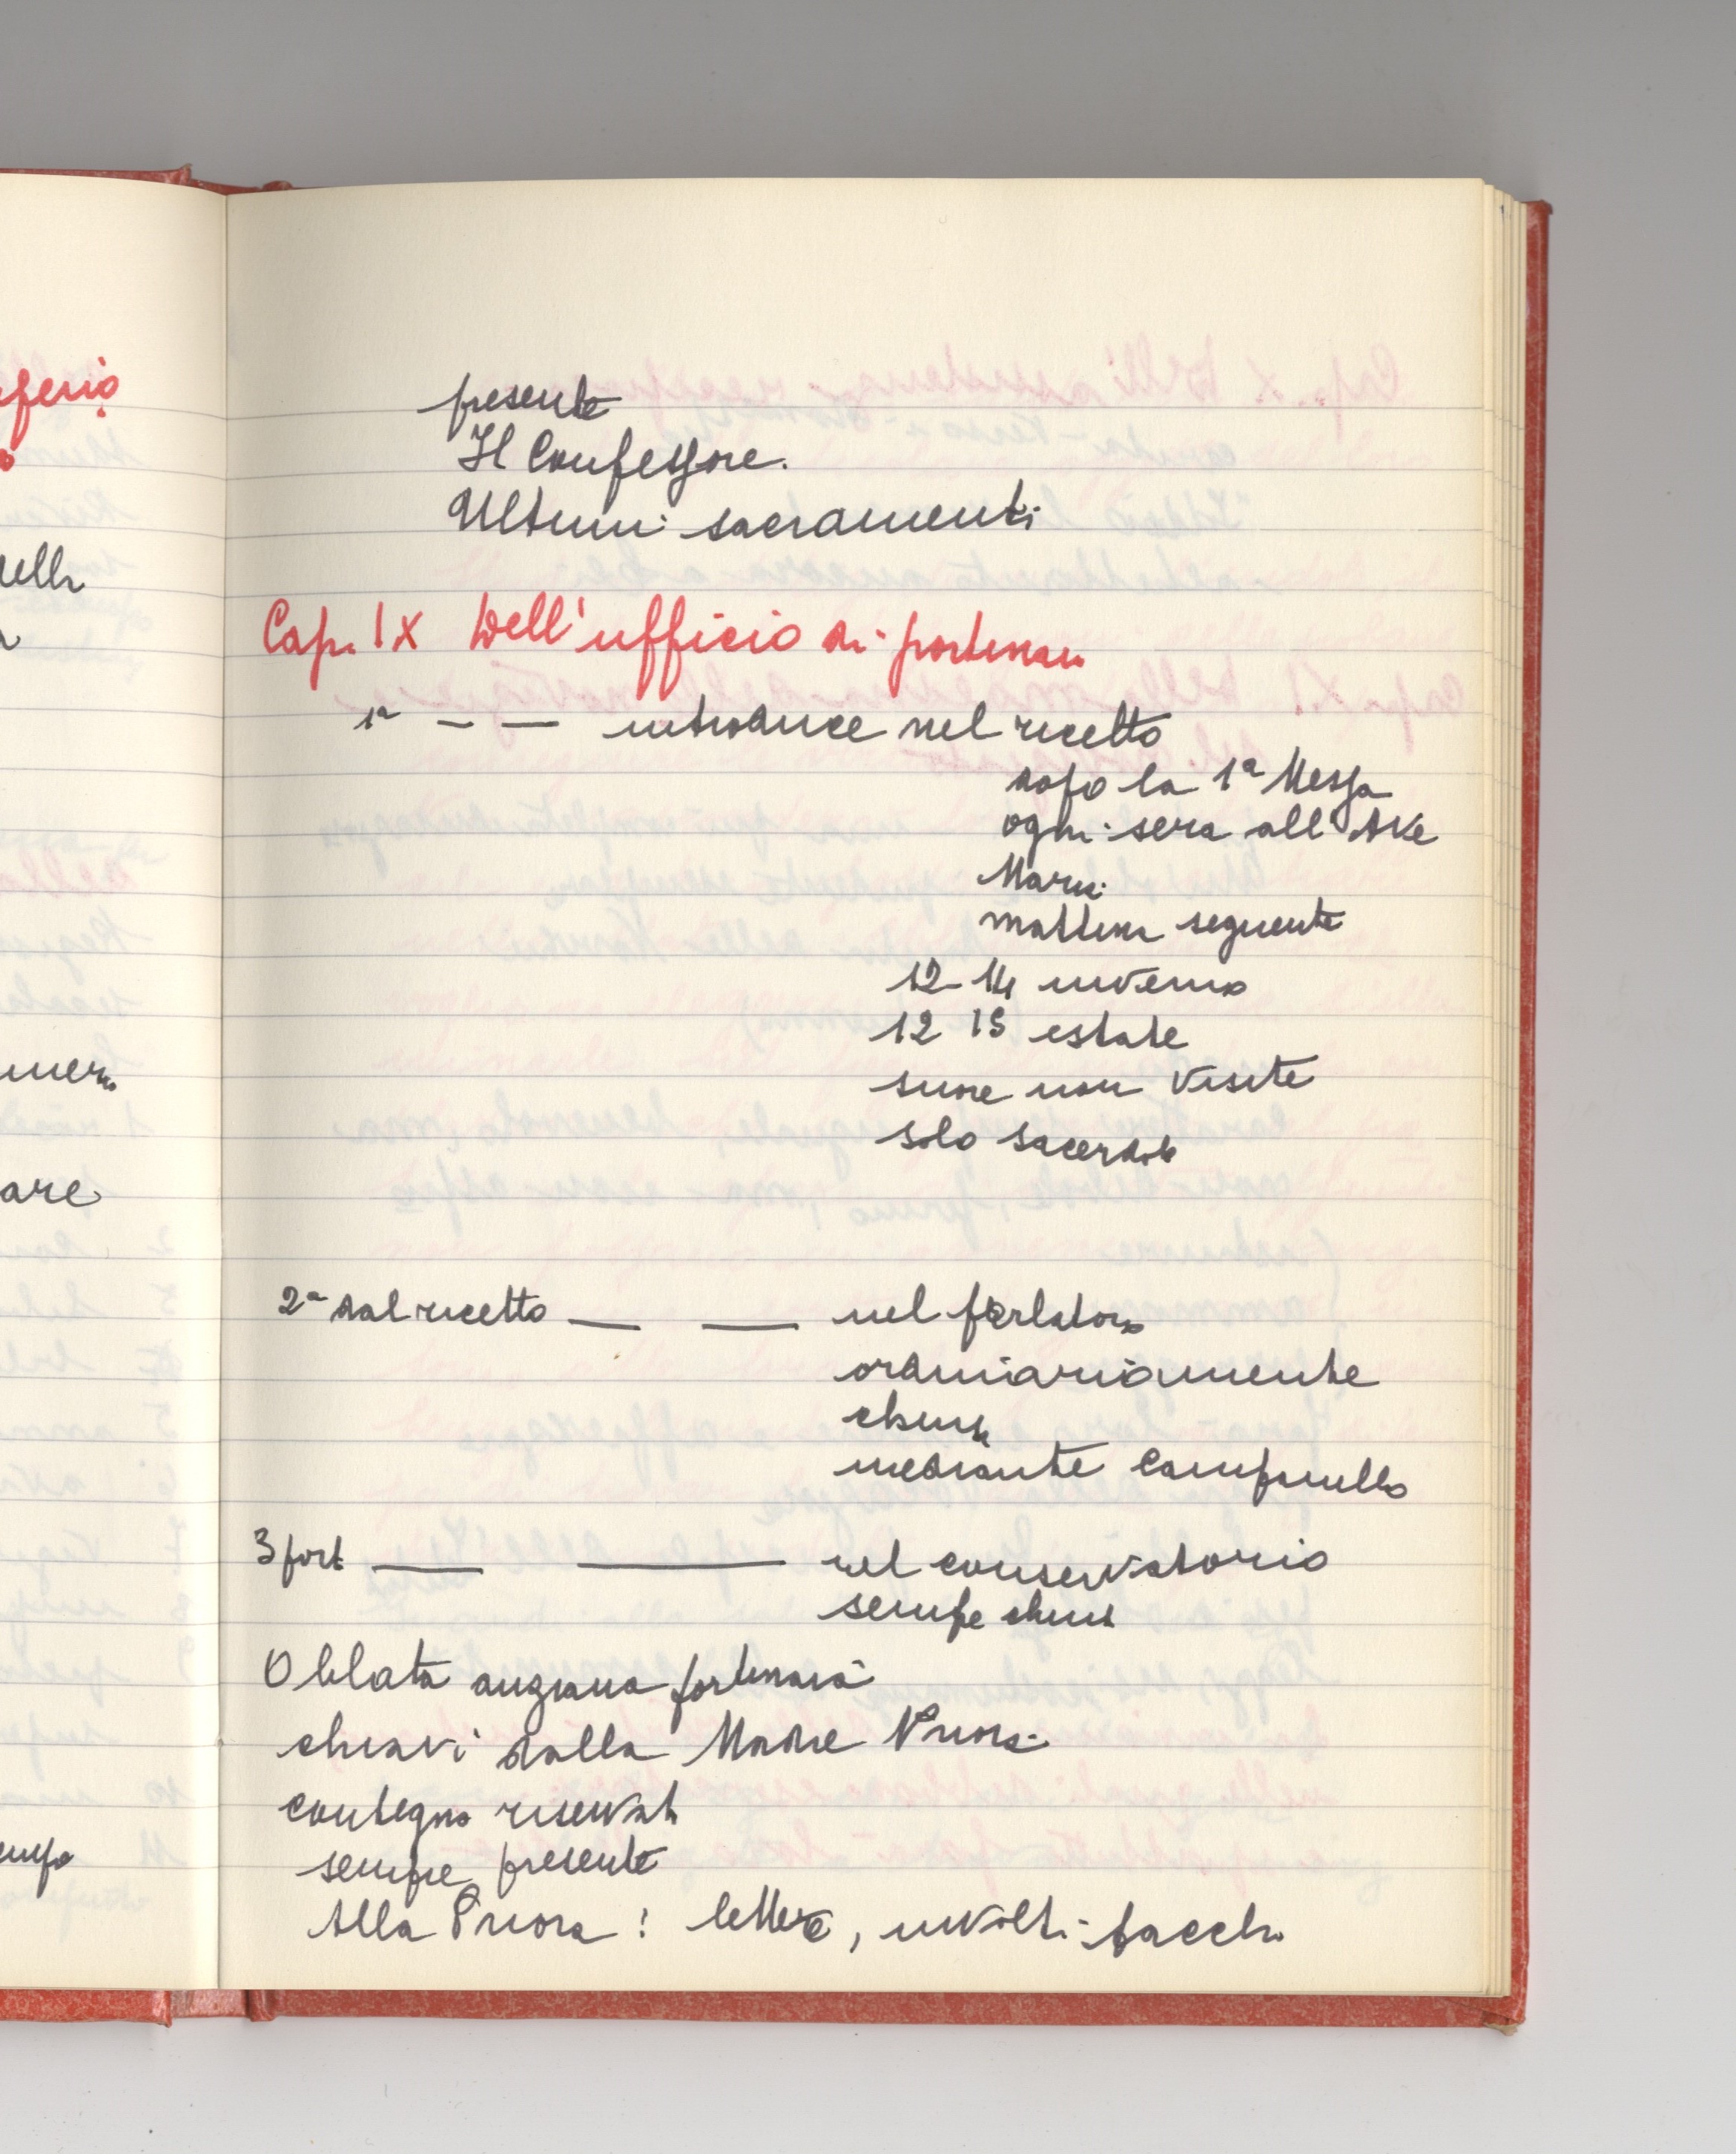 presente
Il Confessore.
Ultimi sacramenti
Cap. IX Dell'ufficio di portinaia
1ª — — introduce nel ricetto
dopo la 1ª Messa
ogni sera all'Ave
Maria
mattina seguente
12-14 inverno
12 15 estate
suore non visite
solo sacerdote
2ª dal ricetto — — nel parlatorio
ordinariamente
chiusa
mediante campanello
3 port — — nel conservatorio
sempre chiusa
Oblata anziana portinaia
chiavi dalla Madre Priora
contegno riservato
sempre presente
Alla Priora: lettere, involti-pacchi